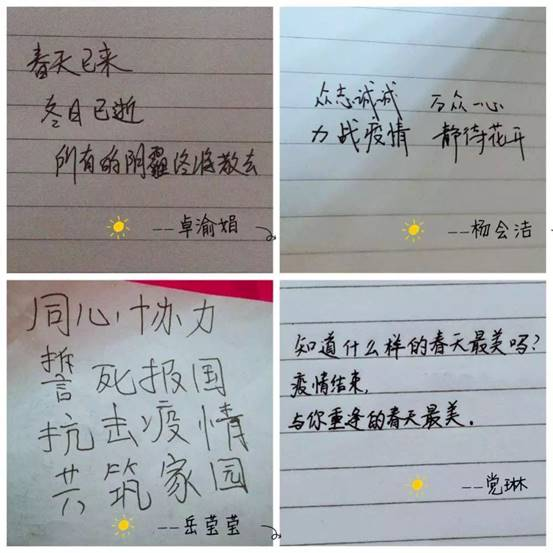 春天已来
冬日已逝
所有的阴霾终将散去
--卓渝娟
众志诚诚 万众一心
力战疫情 静待花开
--杨会洁
同心协力
誓死报国
抗击疫情
共筑家园
--岳莹莹
知道什么样的春天最美吗?
疫情结束,
与你重逢的春天最美.
--党琳